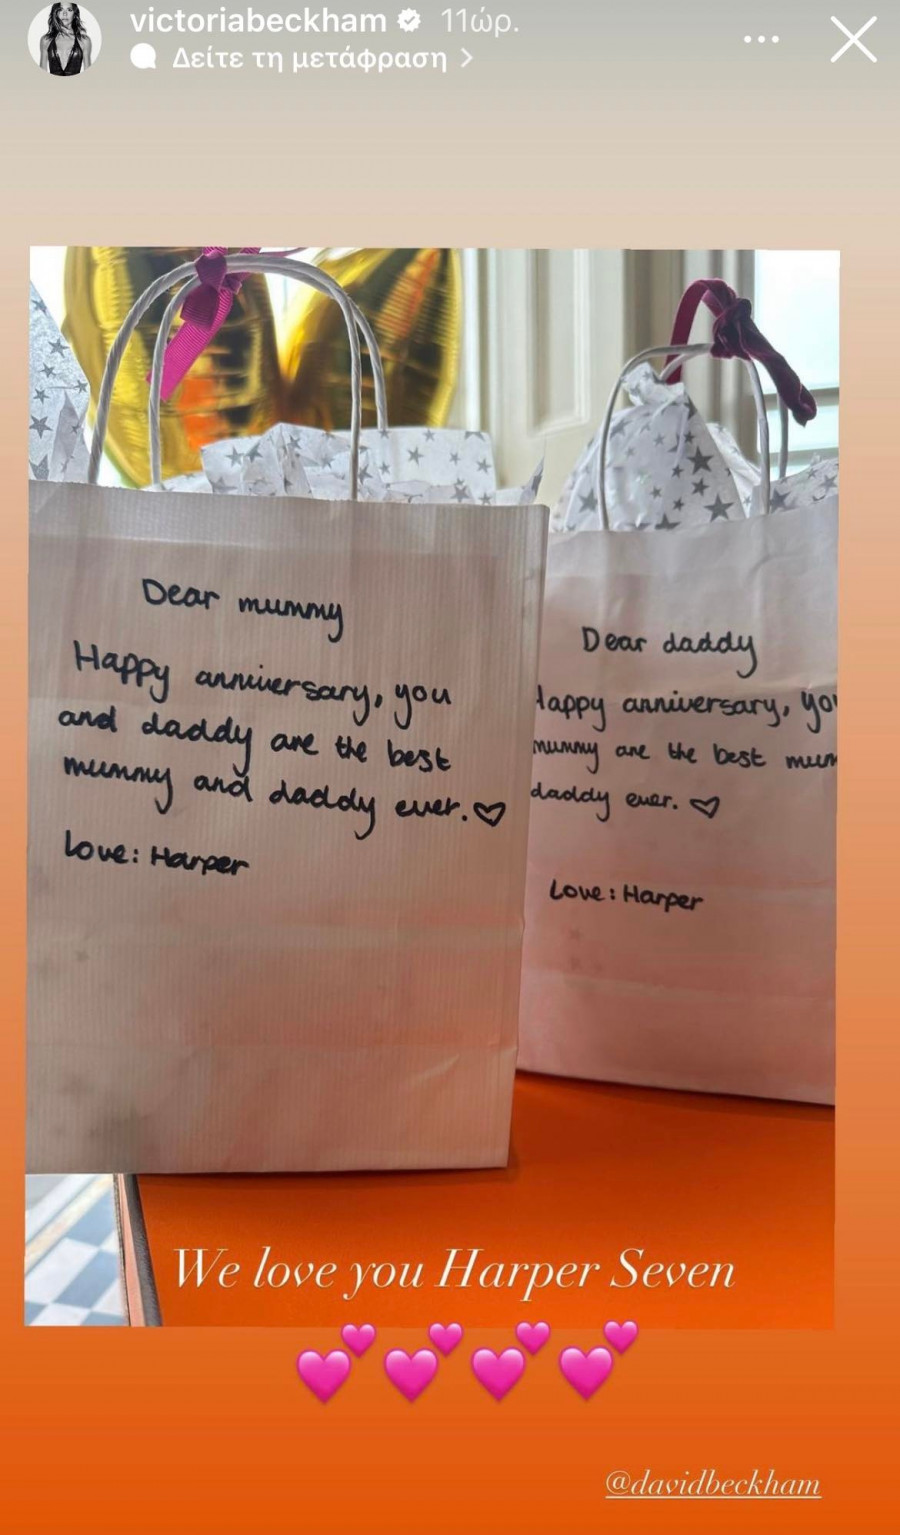 victoriabeckham 11ώρ.
Δείτε τη μετάφραση
Dear mummy
Happy anniversary, you
and daddy are the best
mummy and daddy ever. ♡
Love: Harper
Dear daddy
Happy anniversary,
mummy are the best
daddy ever. ♡
Love: Harper
We love you Harper Seven
💕💕💕💕
@davidbeckham